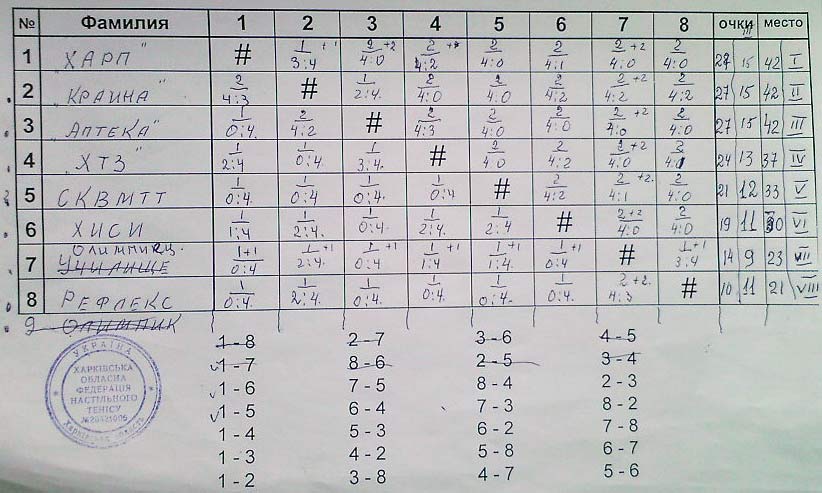 № Фамилия 1 2 3 4 5 6 7 8 очки III место
1 "ХАРП" # 1 3:4 +1 2 4:0 +2 2 4:2 2 4:0 2 4:1 2 4:0 +2 2 4:0 27 15 42 I
2 "КРАИНА" 2 4:3 # 1 2:4. 2 4:0 2 4:0 2 4:2 2 4:2 +2 2 4:2 27 15 42 II
3 "АПТЕКА" 1 0:4. 2 4:2 # 2 4:3 2 4:0 2 4:0 2 4:0 +2 2 4:0 27 15 42 III
4 "ХТЗ" 1 2:4 1 0:4. 1 3:4. # 2 4:0 2 4:2 2 4:0 +2 2 24 13 37 IV
5 СКВМТТ 1 0:4. 1 0:4 1 0:4. 1 0:4 # 2 4:2 2 4:1 +2. 2 4:0 21 12 33 V
6 ХИСИ 1 1:4 1 2:4. 1 0:4. 1 2:4. 1 2:4 # 2 +2 4:0 2 4:0 19 11 30 VI
7 УЧИЛИЩЕ 1+1 0:4 1+1 2:4. 1+1 0:4 1+1 1:4 1+1 1:4. 1+1 0:4 # 1+1 3:4 14 9 23 VII
8 РЕФЛЕКС 1 0:4. 1 2:4. 1 0:4. 1 0:4. 1 0:4. 1 0:4. 2 4:3 +2. # 10 11 21 VIII
9 ОЛИМПИК
1 - 8 2 - 7 3 - 6 4 - 5
1 - 7 8 - 6 2 - 5 3 - 4
1 - 6 7 - 5 8 - 4 2 - 3
1 - 5 6 - 4 7 - 3 8 - 2
1 - 4 5 - 3 6 - 2 7 - 8
1 - 3 4 - 2 5 - 8 6 - 7
1 - 2 3 - 8 4 - 7 5 - 6
УКРАЇНА
ХАРКІВСЬКА
ОБЛАСНА
ФЕДЕРАЦІЯ
НАСТІЛЬНОГО
ТЕНІСУ
Харківська область